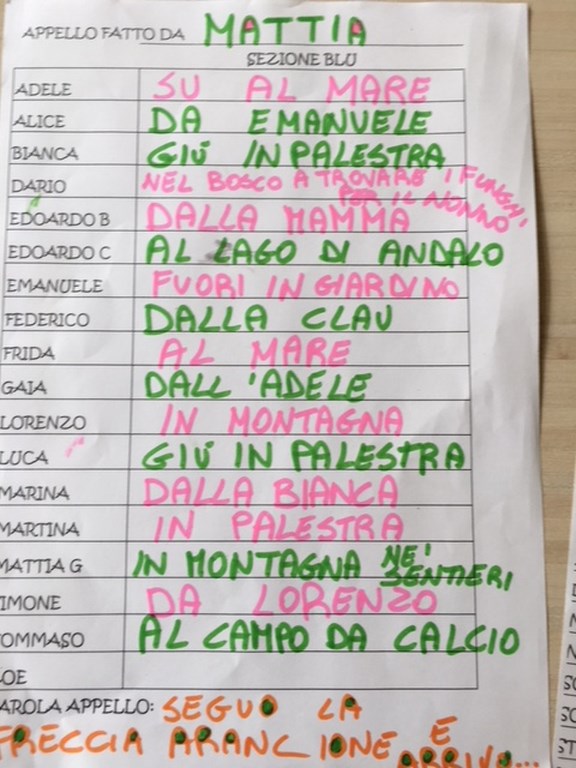 APPELLO FATTO DA MATTIA
SEZIONE BLU
ADELE SU AL MARE
ALICE DA EMANUELE
BIANCA GIÚ IN PALESTRA
DARIO NEL BOSCO A TROVARE I FUNGHI
PER IL NONNO
EDOARDO B DALLA MAMMA
EDOARDO C AL LAGO DI ANDALO
EMANUELE FUORI IN GIARDINO
FEDERICO DALLA CLAU
FRIDA AL MARE
GAIA DALL'ADELE
LORENZO IN MONTAGNA
LUCA GIÚ IN PALESTRA
MARINA DALLA BIANCA
MARTINA IN PALESTRA
MATTIA G IN MONTAGNA NEI
SENTIERI
IMONE DA LORENZO
OMMASO AL CAMPO DA CALCIO
OE
AROLA APPELLO: SEGUO LA
FRECCIA ARANCIONE E
ARRIVO...